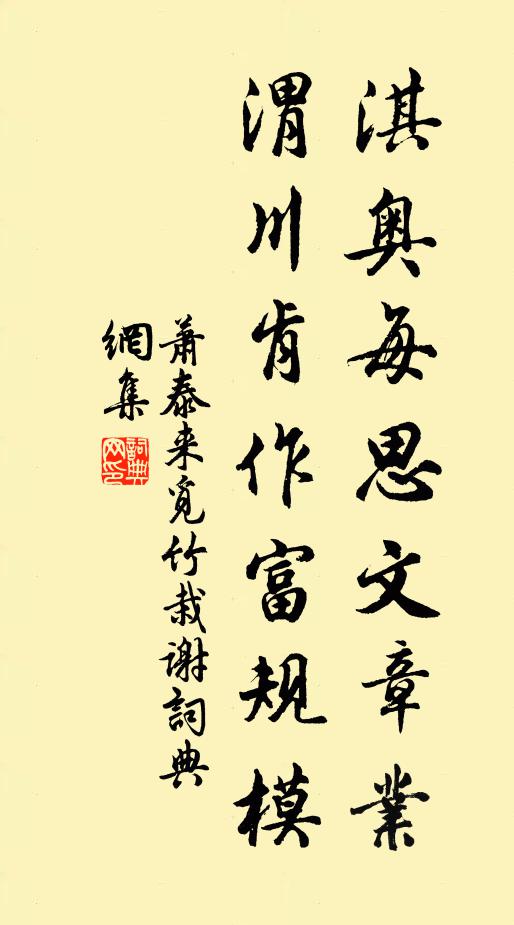 淇奧每思文章業
渭川肯作富規模
蕭泰来覓竹栽谢詞典
網集
詞典網印